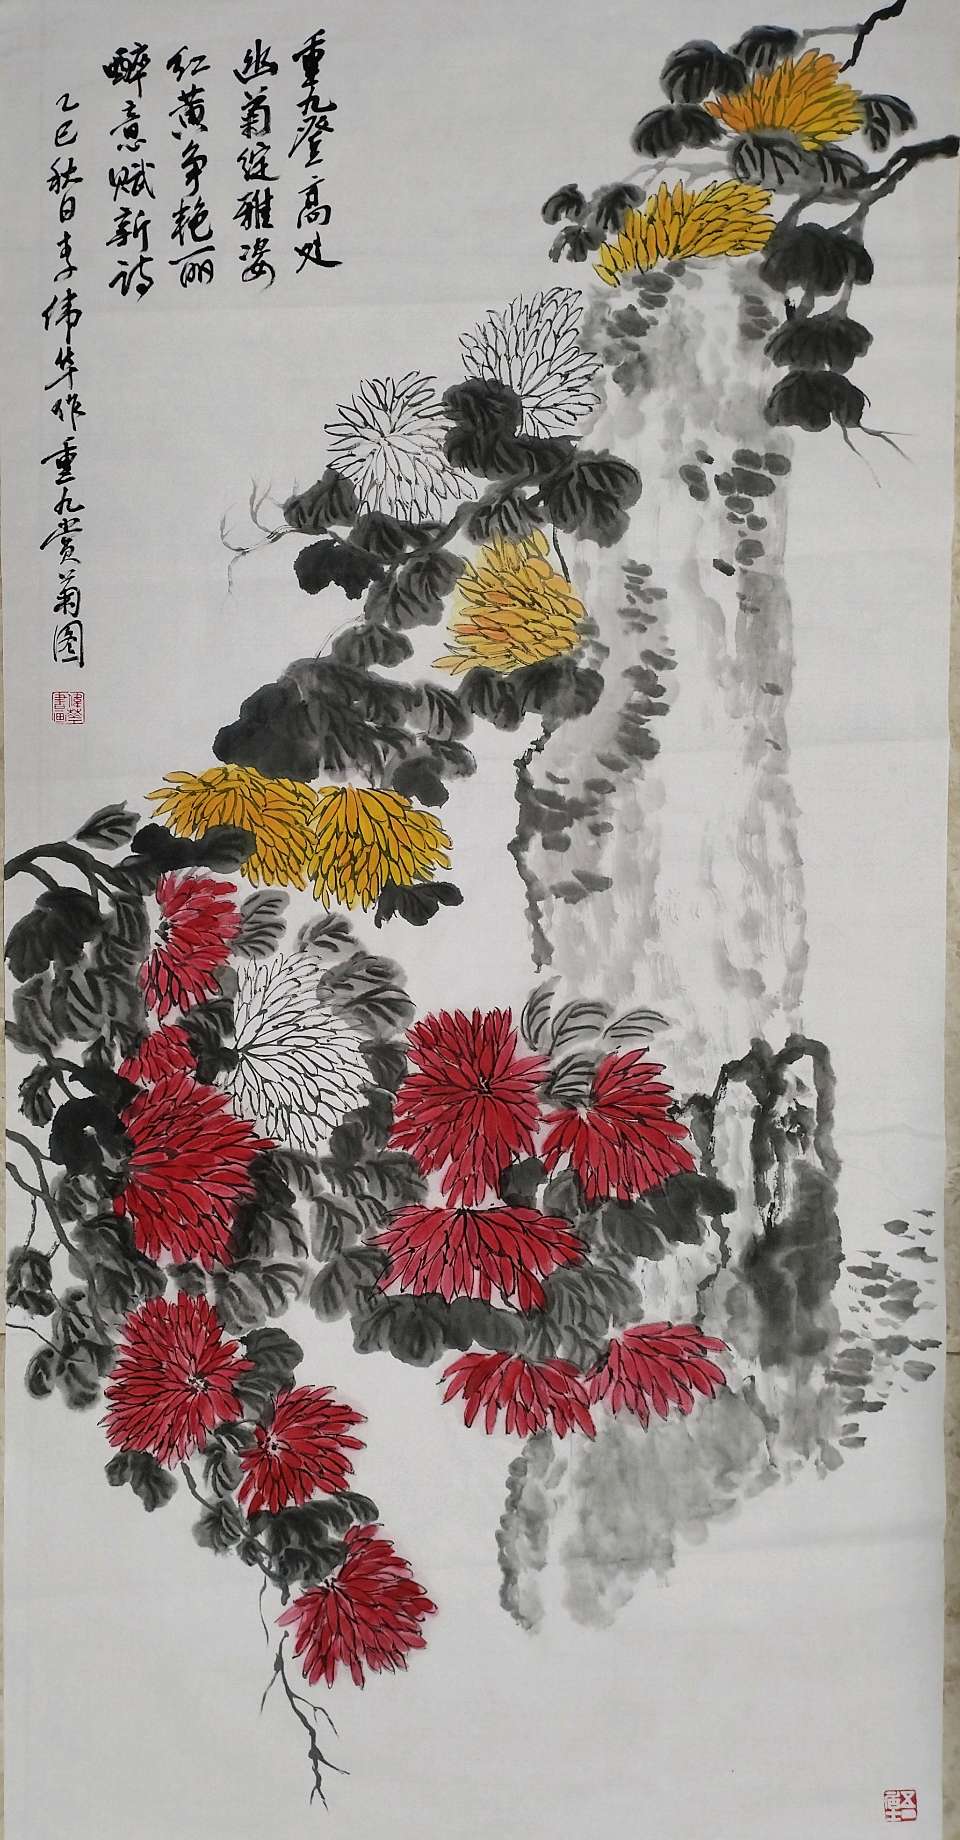 重九登高处
幽菊绽雅姿
红黄争艳丽
醉意赋新诗
乙巳秋日李伟华作重九赏菊图
偉華書画